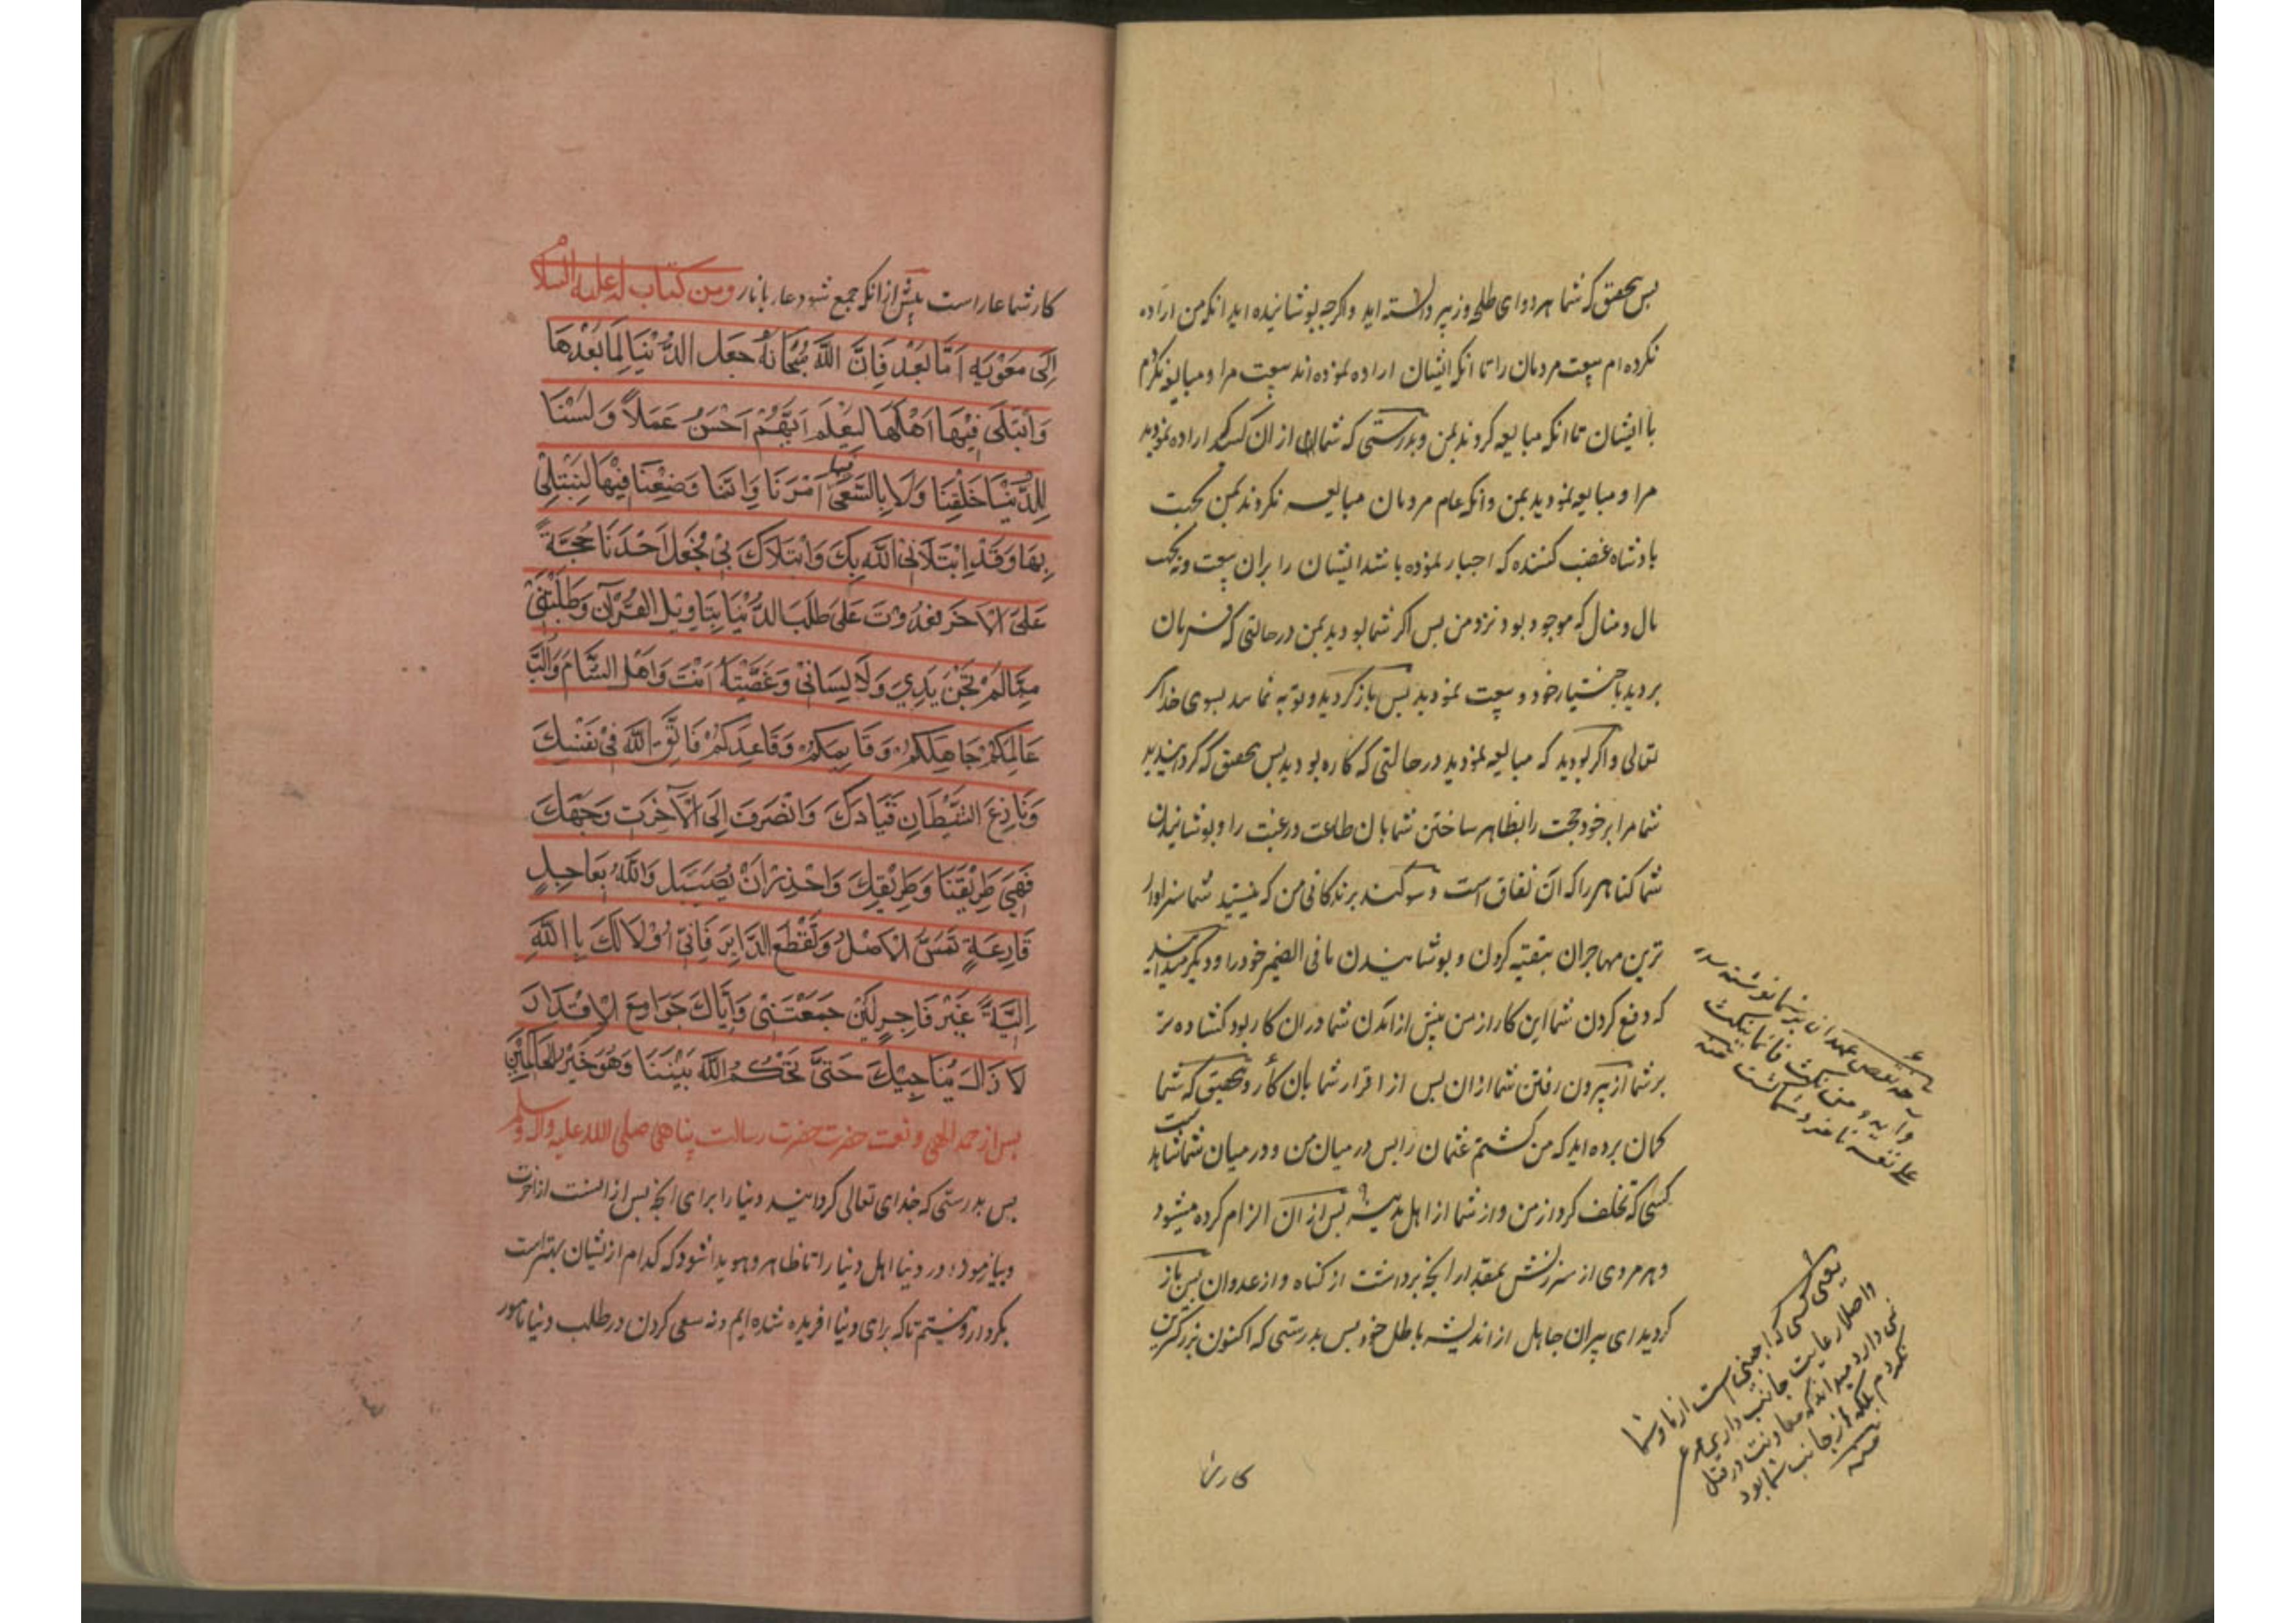 پس بتحقیق که شما هر دو ای طلحه و زبیر دانسته اید و اگرچه پوشانیده اید انکه من اراده
نکرده ام بیعت مردمان را تا انکه ایشان اراده نموده اند بیعت مرا و مبایعه نکردم
با ایشان تا انکه مبایعه کردند بمن و بدرستی که شما از ان کسانید که اراده نمودید
مرا و مبایعه نمودید بمن و انکه عام مردمان مبایعه نکردند بمن بجهت
بادشاه غضب کننده که اجبار نموده باشد ایشان را بران بیعت و نه بجهت
مال و منال که موجود بود نزد من پس اگر شما بودید بمن در حالتی که فرمان
بردید باختیار خود و بیعت نمودید پس باز کردید و توبه نمایید بسوی خدا
تعالی و اگر بودید که مبایعه نمودید در حالتی که کاره بودید پس بتحقیق که گردانیدید
شما مرا بر خود حجت را بظاهر ساختن شما بان طاعت و رغبت را و پوشانیدن
شما گناهی را که آن نفاق است و سوگند بزندگانی من که نیستید شما سزاوار
ترین مهاجران بتقیه کردن و پوشانیدن ما فی الضمیر خود را و دیگر میدانید
که دفع کردن شما این کار از من پیش از آمدن شما دران کار بود گشاده تر
بر شما از بیرون رفتن شما ازان پس از اقرار شما بان کار و بتحقیق که شما
گمان برده اید که من کشتم عثمان را پس در میان من و در میان شما شاهد است
کسی که تخلف کرد از من و از شما از اهل مدینه پس از آن الزام کرده میشود
هر مردی از سرزنش بمقدار انچه برداشت از گناه و از عدوان پس باز
گردید ای پیران جاهل از اندیشه باطل خود پس بدرستی که اکنون بزرگترین
وآیه ومن نکث فانما ینکث
علی نفسه
یعنی کسی که اجنبی است از ما و شما
و اصلا رعایت جانب داری
نمی دارد میداند که معاونت در قتل
نکردم بلکه از جانب شما بود
منه
کار شما
کار شما عار است پیش از انکه جمع شود عار با نار ومن کتاب له علیه السلام
اِلٰی معٰویه اَمّا بَعْد فَاِنَّ اللّٰهَ سُبْحَانَهُ جَعَل الدُّنْیَا لِمَا بَعْدَهَا
وَابْتَلَی فِیْهَا اَهْلَهَا لِیَعْلَمَ اَیُّهُمْ اَحْسَنُ عَمَلاً وَلَسْنَا
لِلدُّنْیَا خُلِقْنَا وَلَا بِالسَّعْیِ فیها اُمِرْنَا وَاِنَّمَا وُضِعْنَا فِیْهَا لِنُبْتَلٰی
بِهَا وَقَدْ اِبْتَلَانِی اللّٰه بِکَ وَابْتَلَاکَ بِیْ فَجَعَلَ اَحَدَنَا حُجَّةً
عَلَی الآخَر فعدوت عَلٰی طَلَبِ الدُّنْیَا بِتَاوِیْلِ القُرْآن وَطَلَبْتَنِیْ
مِمَّا لَمْ تَجْنِ یَدِیْ وَلَا لِسَانِیْ وَعَصَیْتَهُ اَنْتَ وَاَهْل الشَّام وَاَلَّبَ
عَالِمُکُمْ جَاهِلَکُمْ وَقَایِمُکُمْ وَقَاعِدَکُمْ فَاتَّقِ اللّٰه فِیْ نَفْسِکَ
وَنَازِعِ الشَّیْطَانِ قِیَادَکَ وَانْصَرِفْ اِلَی الآخِرَتِ وَجْهَکَ
فَهِیَ طَرِیْقُنَا وَطَرِیْقُکَ وَاحْذَرْ اَنْ یُصِیْبَکَ اللّٰهُ بِعَاجِلِ
قَارِعَةٍ تَمَسُّ الاَصْلَ وَتَقْطَع الدَّابِرَ فَاِنِّیْ اُوْلِی لَکَ بِاللّٰهِ
اَلِیَّةً غَیْرَ فَاجِرٍ لَئِنْ جَمَعَتْنِیْ وَاِیَّاکَ جَوَامِعَ الاَقْدَارِ
لَا زَالَ بِنَاحِیَتِکَ حَتّٰی یَحْکُمَ اللّٰه بَیْنَنَا وَهُوَ خَیْرُ الحَاکِمِیْن
پس از حمد الهی و نعت حضرت حضرت رسالت پناهی صلی الله علیه واله وسلم
پس بدرستی که خدای تعالی گردانید دنیا را برای انچه پس از انست از اخرت
و بیازمود در دنیا اهل دنیا را تا ظاهر و هویدا شود که کدام ازیشان بهتر است
بکردار و نیستیم ما که برای دنیا افریده شده ایم و نه سعی کردن در طلب دنیا مامور